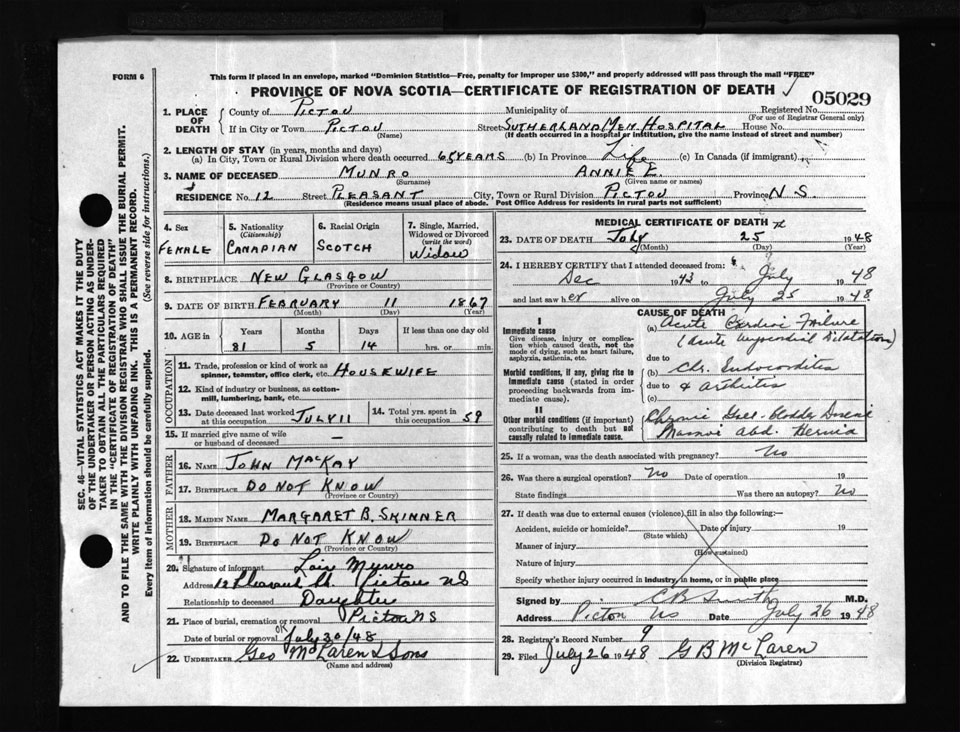 FORM 6
This form if placed in an envelope, marked "Dominion Statistics—Free, penalty for improper use $300," and properly addressed will pass through the mail "FREE"
PROVINCE OF NOVA SCOTIA—CERTIFICATE OF REGISTRATION OF DEATH
05029
1. PLACE OF DEATH
County of PICTOU Municipality of Registered No.
(For use of Registrar General only)
If in City or Town PICTOU Street SUTHERLAND MEM. HOSPITAL House No.
(Name) (If death occurred in a hospital or institution, give the name instead of street and number)
2. LENGTH OF STAY (in years, months and days)
(a) In City, Town or Rural Division where death occurred 65 YEARS (b) In Province Life (c) In Canada (if immigrant)
3. NAME OF DECEASED MUNRO ANNIE E.
(Surname) (Given name or names)
RESIDENCE No. 12 Street PLEASANT City, Town or Rural Division PICTOU Province N S.
(Residence means usual place of abode. Post Office Address for residents in rural parts not sufficient)
4. Sex
FEMALE
5. Nationality
(Citizenship)
CANADIAN
6. Racial Origin
SCOTCH
7. Single, Married, Widowed or Divorced
(write the word)
Widow
8. BIRTHPLACE NEW GLASGOW
(Province or Country)
9. DATE OF BIRTH FEBRUARY 11 1867
(Month) (Day) (Year)
10. AGE in
Years Months Days If less than one day old
81 5 14 hrs. or min.
OCCUPATION
11. Trade, profession or kind of work as spinner, teamster, office clerk, etc. HOUSEWIFE
12. Kind of industry or business, as cotton-mill, lumbering, bank, etc.
13. Date deceased last worked at this occupation JULY 11
14. Total yrs. spent in this occupation 59
15. If married give name of wife or husband of deceased —
FATHER
16. NAME JOHN MACKAY
17. BIRTHPLACE DO NOT KNOW
(Province or Country)
MOTHER
18. MAIDEN NAME MARGARET B. SKINNER
19. BIRTHPLACE DO NOT KNOW
(Province or Country)
20. Signature of informant Lois Munro
Address 12 Pleasant St. Pictou NS
Relationship to deceased Daughter
21. Place of burial, cremation or removal Pictou NS
Date of burial or removal July 30/48
22. UNDERTAKER Geo McLaren & Sons
(Name and address)
MEDICAL CERTIFICATE OF DEATH
23. DATE OF DEATH JULY 25 1948
(Month) (Day) (Year)
24. I HEREBY CERTIFY that I attended deceased from:
Dec 1943 to July 1948
and last saw her alive on July 25 1948
CAUSE OF DEATH
I
Immediate cause
Give disease, injury or complication which caused death, not the mode of dying, such as heart failure, asphyxia, asthenia, etc.
(a) Acute Cardiac Failure
(Acute Myocardial Dilatation)
due to
Morbid conditions, if any, giving rise to immediate cause (stated in order proceeding backwards from immediate cause).
(b) Chr. Endocarditis
due to & Arthritis
(c)
II
Other morbid conditions (if important) contributing to death but not causally related to immediate cause.
Chronic Gall-bladder Disease
Massive abd. Hernia
25. If a woman, was the death associated with pregnancy? No
26. Was there a surgical operation? No Date of operation 19
State findings Was there an autopsy? No
27. If death was due to external causes (violence), fill in also the following:—
Accident, suicide or homicide? Date of injury 19
(State which)
Manner of injury
(How sustained)
Nature of injury
Specify whether injury occurred in industry, in home, or in public place
Signed by C B Smith M.D.
Address Pictou NS Date July 26 1948
28. Registrar's Record Number 9
29. Filed July 26 1948 G B McLaren
(Division Registrar)
SEC. 46—VITAL STATISTICS ACT MAKES IT THE DUTY
OF THE UNDERTAKER OR PERSON ACTING AS UNDER-
TAKER TO OBTAIN ALL THE PARTICULARS REQUIRED
IN THE "CERTIFICATE OF REGISTRATION OF DEATH"
AND TO FILE THE SAME WITH THE DIVISION REGISTRAR WHO SHALL ISSUE THE BURIAL PERMIT.
WRITE PLAINLY WITH UNFADING INK. THIS IS A PERMANENT RECORD.
Every item of information should be carefully supplied. (See reverse side for instructions.)